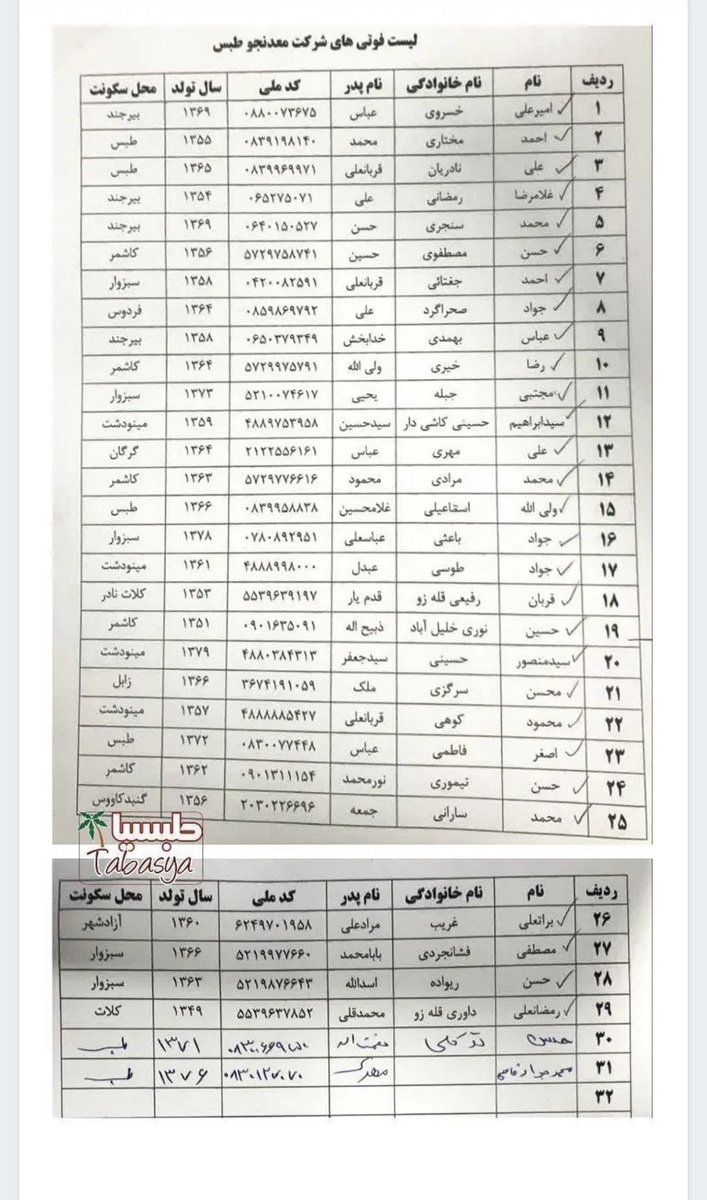 لیست فوتی های شرکت معدنجو طبس
ردیف نام نام خانوادگی نام پدر کد ملی سال تولد محل سکونت
۱ امیرعلی خسروی عباس ۰۸۸۰۰۷۳۶۷۵ ۱۳۶۹ بیرجند
۲ احمد مختاری محمد ۰۸۳۹۱۹۸۱۴۰ ۱۳۵۵ طبس
۳ علی نادریان قربانعلی ۰۸۳۹۹۶۹۹۷۱ ۱۳۶۵ طبس
۴ غلامرضا رمضانی علی ۰۶۵۲۷۵۰۷۱ ۱۳۵۴ بیرجند
۵ محمد سنجری حسن ۰۶۴۰۱۵۰۵۲۷ ۱۳۶۹ بیرجند
۶ حسن مصطفوی حسین ۵۷۲۹۷۵۸۷۴۱ ۱۳۵۶ کاشمر
۷ احمد جغتائی قربانعلی ۰۴۲۰۰۸۲۵۹۱ ۱۳۵۸ سبزوار
۸ جواد صحراگرد علی ۰۸۵۹۸۶۹۷۹۲ ۱۳۶۴ فردوس
۹ عباس بهمدی خدابخش ۰۶۵۰۳۷۹۳۴۹ ۱۳۵۸ بیرجند
۱۰ رضا خیری ولی الله ۵۷۲۹۹۷۵۷۹۱ ۱۳۶۴ کاشمر
۱۱ مجتبی جبله یحیی ۵۲۱۰۰۷۴۶۱۷ ۱۳۷۳ سبزوار
۱۲ سیدابراهیم حسینی کاشی دار سیدحسین ۴۸۸۹۷۵۳۹۵۸ ۱۳۵۹ مینودشت
۱۳ علی مهری عباس ۲۱۲۲۵۵۶۱۶۱ ۱۳۶۴ گرگان
۱۴ محمد مرادی محمود ۵۷۲۹۷۷۶۶۱۶ ۱۳۶۳ کاشمر
۱۵ ولی الله اسماعیلی غلامحسین ۰۸۳۹۹۵۸۸۳۸ ۱۳۶۶ طبس
۱۶ جواد باعثی عباسعلی ۰۷۸۰۸۹۲۹۵۱ ۱۳۷۸ سبزوار
۱۷ جواد طوسی عبدل ۴۸۸۸۹۹۸۰۰۰ ۱۳۶۱ مینودشت
۱۸ قربان رفیعی قله زو قدم یار ۵۵۳۹۶۳۹۱۹۷ ۱۳۵۳ کلات نادر
۱۹ حسین نوری خلیل آباد ذبیح اله ۰۹۰۱۶۳۵۰۹۱ ۱۳۵۱ کاشمر
۲۰ سیدمنصور حسینی سیدجعفر ۴۸۸۰۳۸۴۳۱۳ ۱۳۷۹ مینودشت
۲۱ محسن سرگزی ملک ۳۶۷۴۱۹۱۰۵۹ ۱۳۶۶ زابل
۲۲ محمود کوهی قربانعلی ۴۸۸۸۸۸۵۴۲۷ ۱۳۵۷ مینودشت
۲۳ اصغر فاطمی عباس ۰۸۳۰۰۷۷۴۴۸ ۱۳۷۲ طبس
۲۴ حسن تیموری نورمحمد ۰۹۰۱۳۱۱۱۵۴ ۱۳۶۲ کاشمر
۲۵ محمد سارانی جمعه ۲۰۳۰۲۲۶۶۹۶ ۱۳۵۶ گنبدکاووس
طبسیا
Tabasya
ردیف نام نام خانوادگی نام پدر کد ملی سال تولد محل سکونت
۲۶ براتعلی غریب مرادعلی ۶۲۴۹۷۰۱۹۵۸ ۱۳۶۰ آزادشهر
۲۷ مصطفی فشانجردی بابامحمد ۵۲۱۹۹۷۷۶۶۰ ۱۳۶۶ سبزوار
۲۸ حسن ریواده اسدالله ۵۲۱۹۸۷۶۶۴۳ ۱۳۶۳ سبزوار
۲۹ رمضانعلی داوری قله زو محمدقلی ۵۵۳۹۶۳۷۸۵۲ ۱۳۴۹ کلات
۳۰ ۱۳۷۱
۳۱ محمد جواد ۱۳۷۶
۳۲